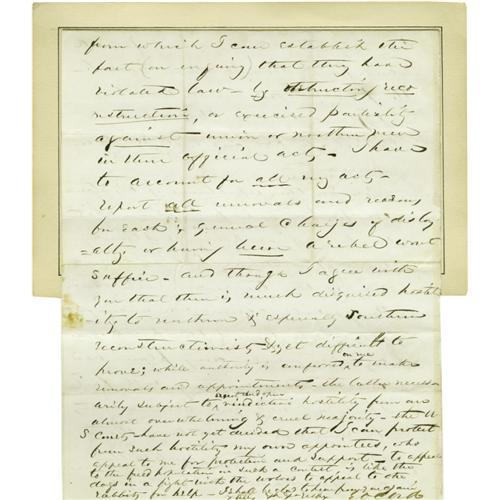 from which I can establish the
fact (on inquiry) that they have
violated law - by obstructing reco
nstruction, or exercised partiality
against union or northern men
in their official acts - I have
to account for all my acts -
report all removals and reasons
for each; general charges of disloy
=alty, or having been a rebel wont
suffice - and though I agree with
you that there is much disguised hostil
ity to northern & especially Southern
reconstructionists yet difficult to
prove; while authority is on me to make
removals and appointments - the latter necess
arily subject to vindictive hostility from an
almost overwhelming & cruel majority - the U
S Courts have not yet decided that I can protect
from such hostility my own appointees, who
appeal to me for protection and support - to appeal
to the in such a contest is like the
in a fight with the wolves to appeal to the
for help - I shall be when you again